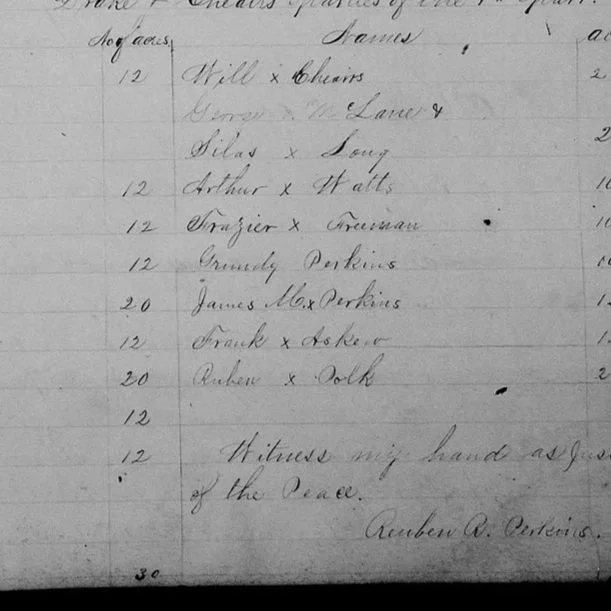 Drake & Cheairs parties of the 1st part.
No of acres Names ac
12 Will x Cheairs 2
George x M Lane &
Silas x Long 2
12 Arthur x Watts 10
12 Frazier x Freeman 10
12 Grundy Perkins 10
20 James M. x Perkins 1
12 Frank x Askew 1
20 Ruben x Polk 2
12
12 Witness my hand as Jus
of the Peace.
Reuben R. Perkins.
30